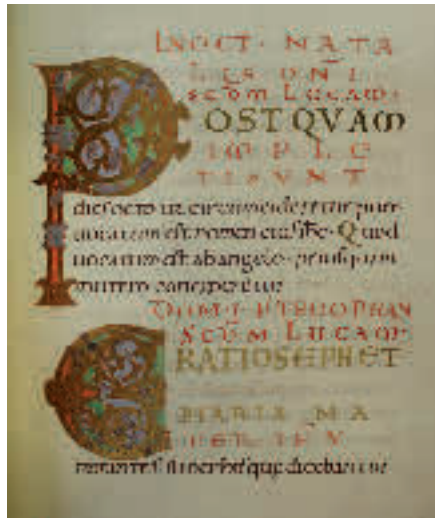 IN OCT · NATA
LIS DNI
SCDM LUCAM
POST QVAM
IMPLE
TI SVNT
dies octo ut circumcideretur puer
uocatum est nomen eius ihc · Quod
uocatum est ab angelo · priusquam
in utero conciperetur
DOM · I · P
SCDM LUCAM
ERAT IOSEPH ET
MARIA MA
TER IHV
mirantes super his que dicebantur